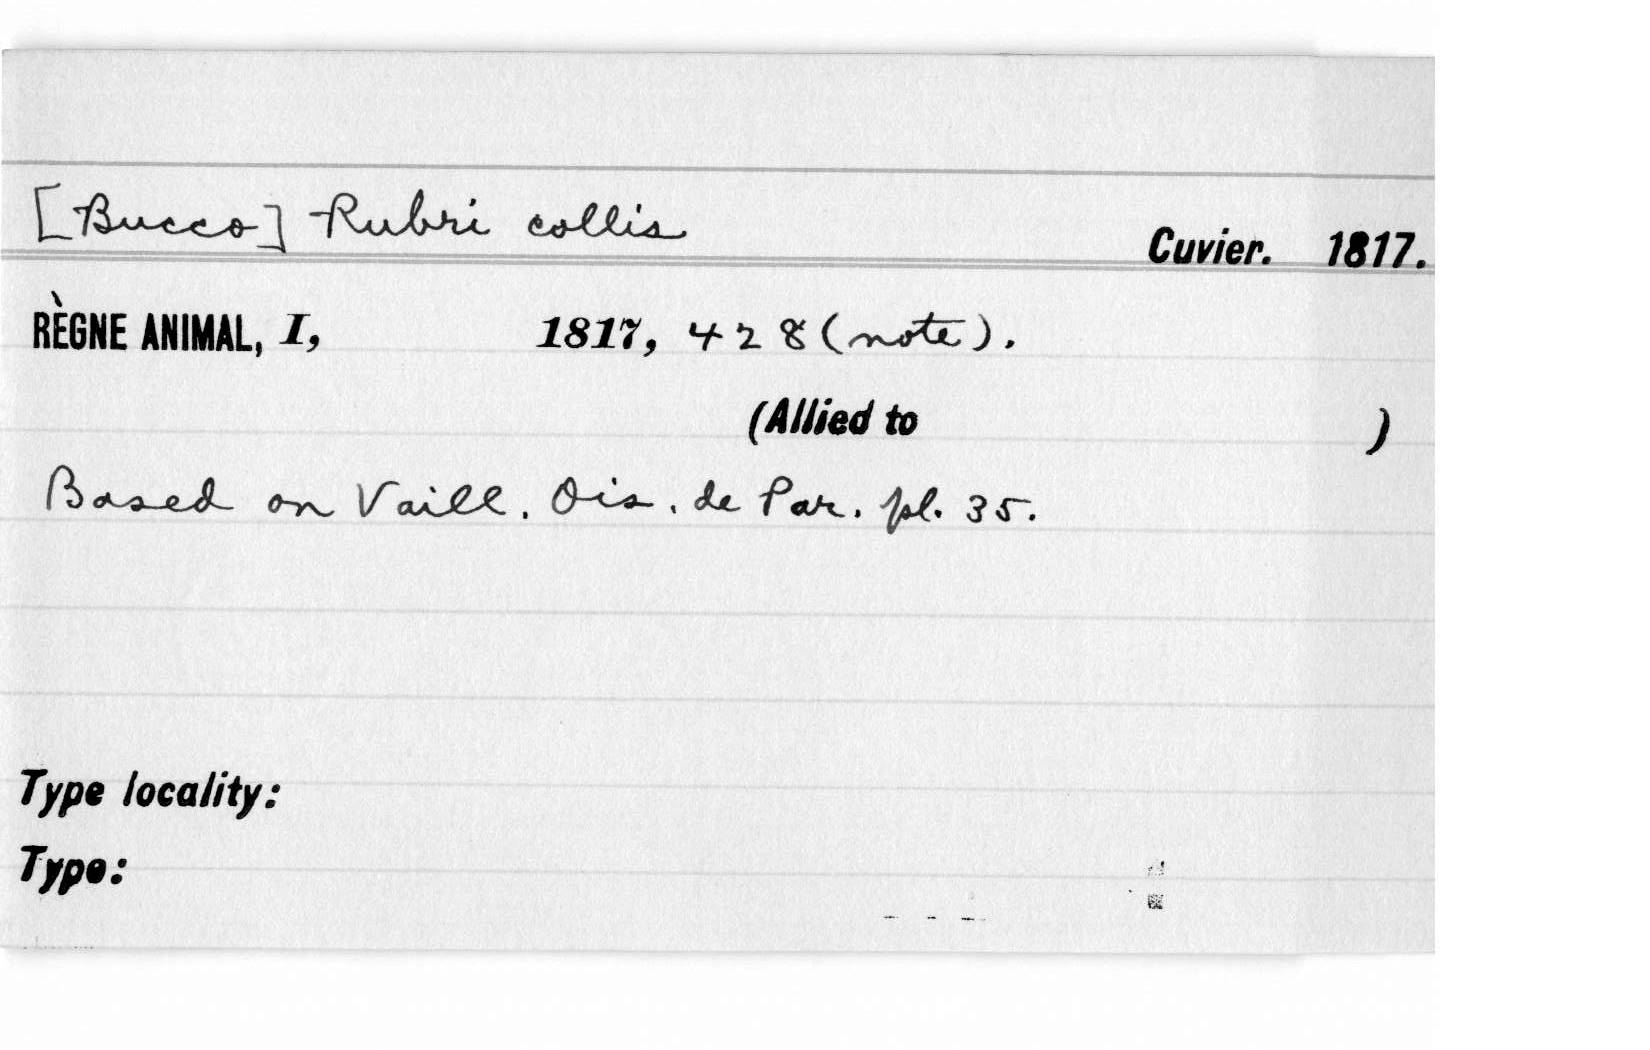 [Bucco] Rubri collis Cuvier. 1817.
RÈGNE ANIMAL, I, 1817, 428 (note).
(Allied to )
Based on Vaill. Ois. de Par. pl. 35.
Type locality:
Type: